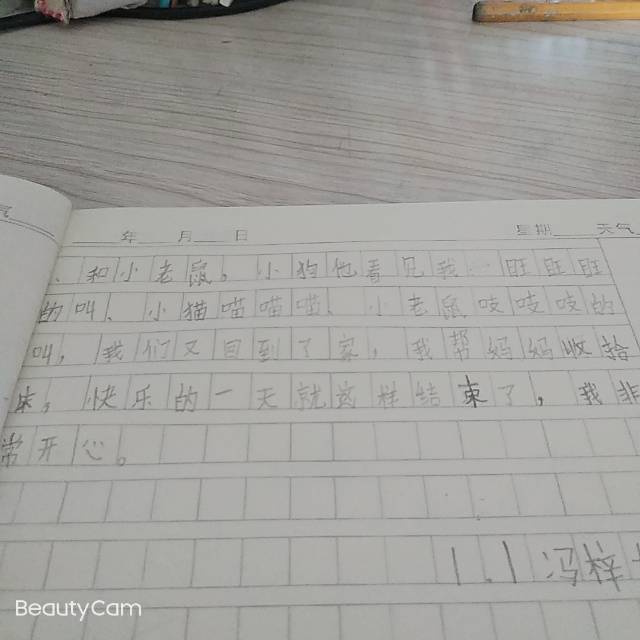 气
年 月 日 星期 天气
、和小老鼠。小狗他看见我一旺旺旺
的叫、小猫喵喵喵、小老鼠吱吱吱的
叫,我们又回到了家,我帮妈妈收拾
床,快乐的一天就这样结束了,我非
常开心。
1.1 冯梓
BeautyCam